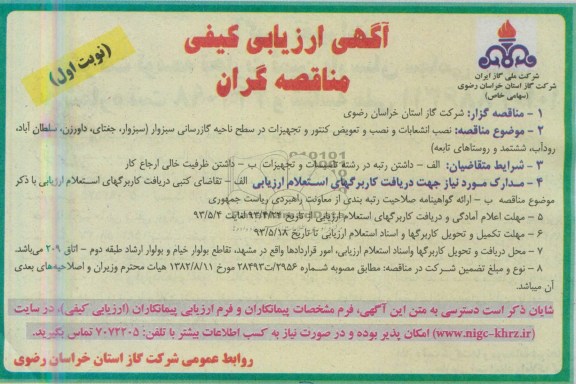 آگهی ارزیابی کیفی
مناقصه گران
(نوبت اول)
شرکت ملی گاز ایران
شرکت گاز استان خراسان رضوی
(سهامی خاص)
۱ - مناقصه گزار: شرکت گاز استان خراسان رضوی
۲ - موضوع مناقصه: نصب انشعابات و نصب و تعویض کنتور و تجهیزات در سطح ناحیه گازرسانی سبزوار (سبزوار، جغتای، داورزن، سلطان آباد،
رودآب، ششتمد و روستاهای تابعه)
۳ - شرایط متقاضیان: الف - داشتن رتبه در رشته تاسیسات و تجهیزات ب - داشتن ظرفیت خالی ارجاع کار
۴ - مدارک مورد نیاز جهت دریافت کاربرگهای استعلام ارزیابی الف - تقاضای کتبی دریافت کاربرگهای استعلام ارزیابی با ذکر
موضوع مناقصه ب - ارائه گواهینامه صلاحیت رتبه بندی از معاونت راهبردی ریاست جمهوری
۵ - مهلت اعلام آمادگی و دریافت کاربرگهای استعلام ارزیابی از تاریخ ۹۳/۴/۲۴ لغایت ۹۳/۵/۴
۶ - مهلت تکمیل و تحویل کاربرگها و اسناد استعلام ارزیابی تا تاریخ ۹۳/۵/۱۸
۷ - محل دریافت و تحویل کاربرگها واسناد استعلام ارزیابی، امور قراردادها واقع در مشهد، تقاطع بولوار خیام و بولوار ارشاد طبقه دوم - اتاق ۲۰۹ می‌باشد.
۸ - نوع و مبلغ تضمین شرکت در مناقصه: مطابق مصوبه شماره ۲۹۵۶/ت۲۸۴۹۳ مورخ ۱۳۸۲/۸/۱۱ هیات محترم وزیران و اصلاحیه‌های بعدی
آن میباشد.
شایان ذکر است دسترسی به متن این آگهی، فرم مشخصات پیمانکاران و فرم ارزیابی پیمانکاران (ارزیابی کیفی)، در سایت
(www.nigc-khrz.ir) امکان پذیر بوده و در صورت نیاز به کسب اطلاعات بیشتر با تلفن: ۷۰۷۲۲۰۵ تماس بگیرید.
روابط عمومی شرکت گاز استان خراسان رضوی